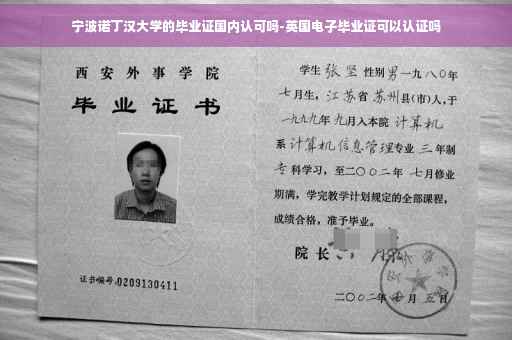 宁波诺丁汉大学的毕业证国内认可吗-英国电子毕业证可以认证吗
西安外事学院
毕业证书
证书编号:0209130411
学生张坚性别男一九八〇年
七月生,江苏省苏州县(市)人,于
一九九九年九月入本院计算机
系计算机信息管理专业三年制
专科学习,至二〇〇二年七月修业
期满,学完教学计划规定的全部课程,
成绩合格,准予毕业。
院长
二〇〇二年七月五日